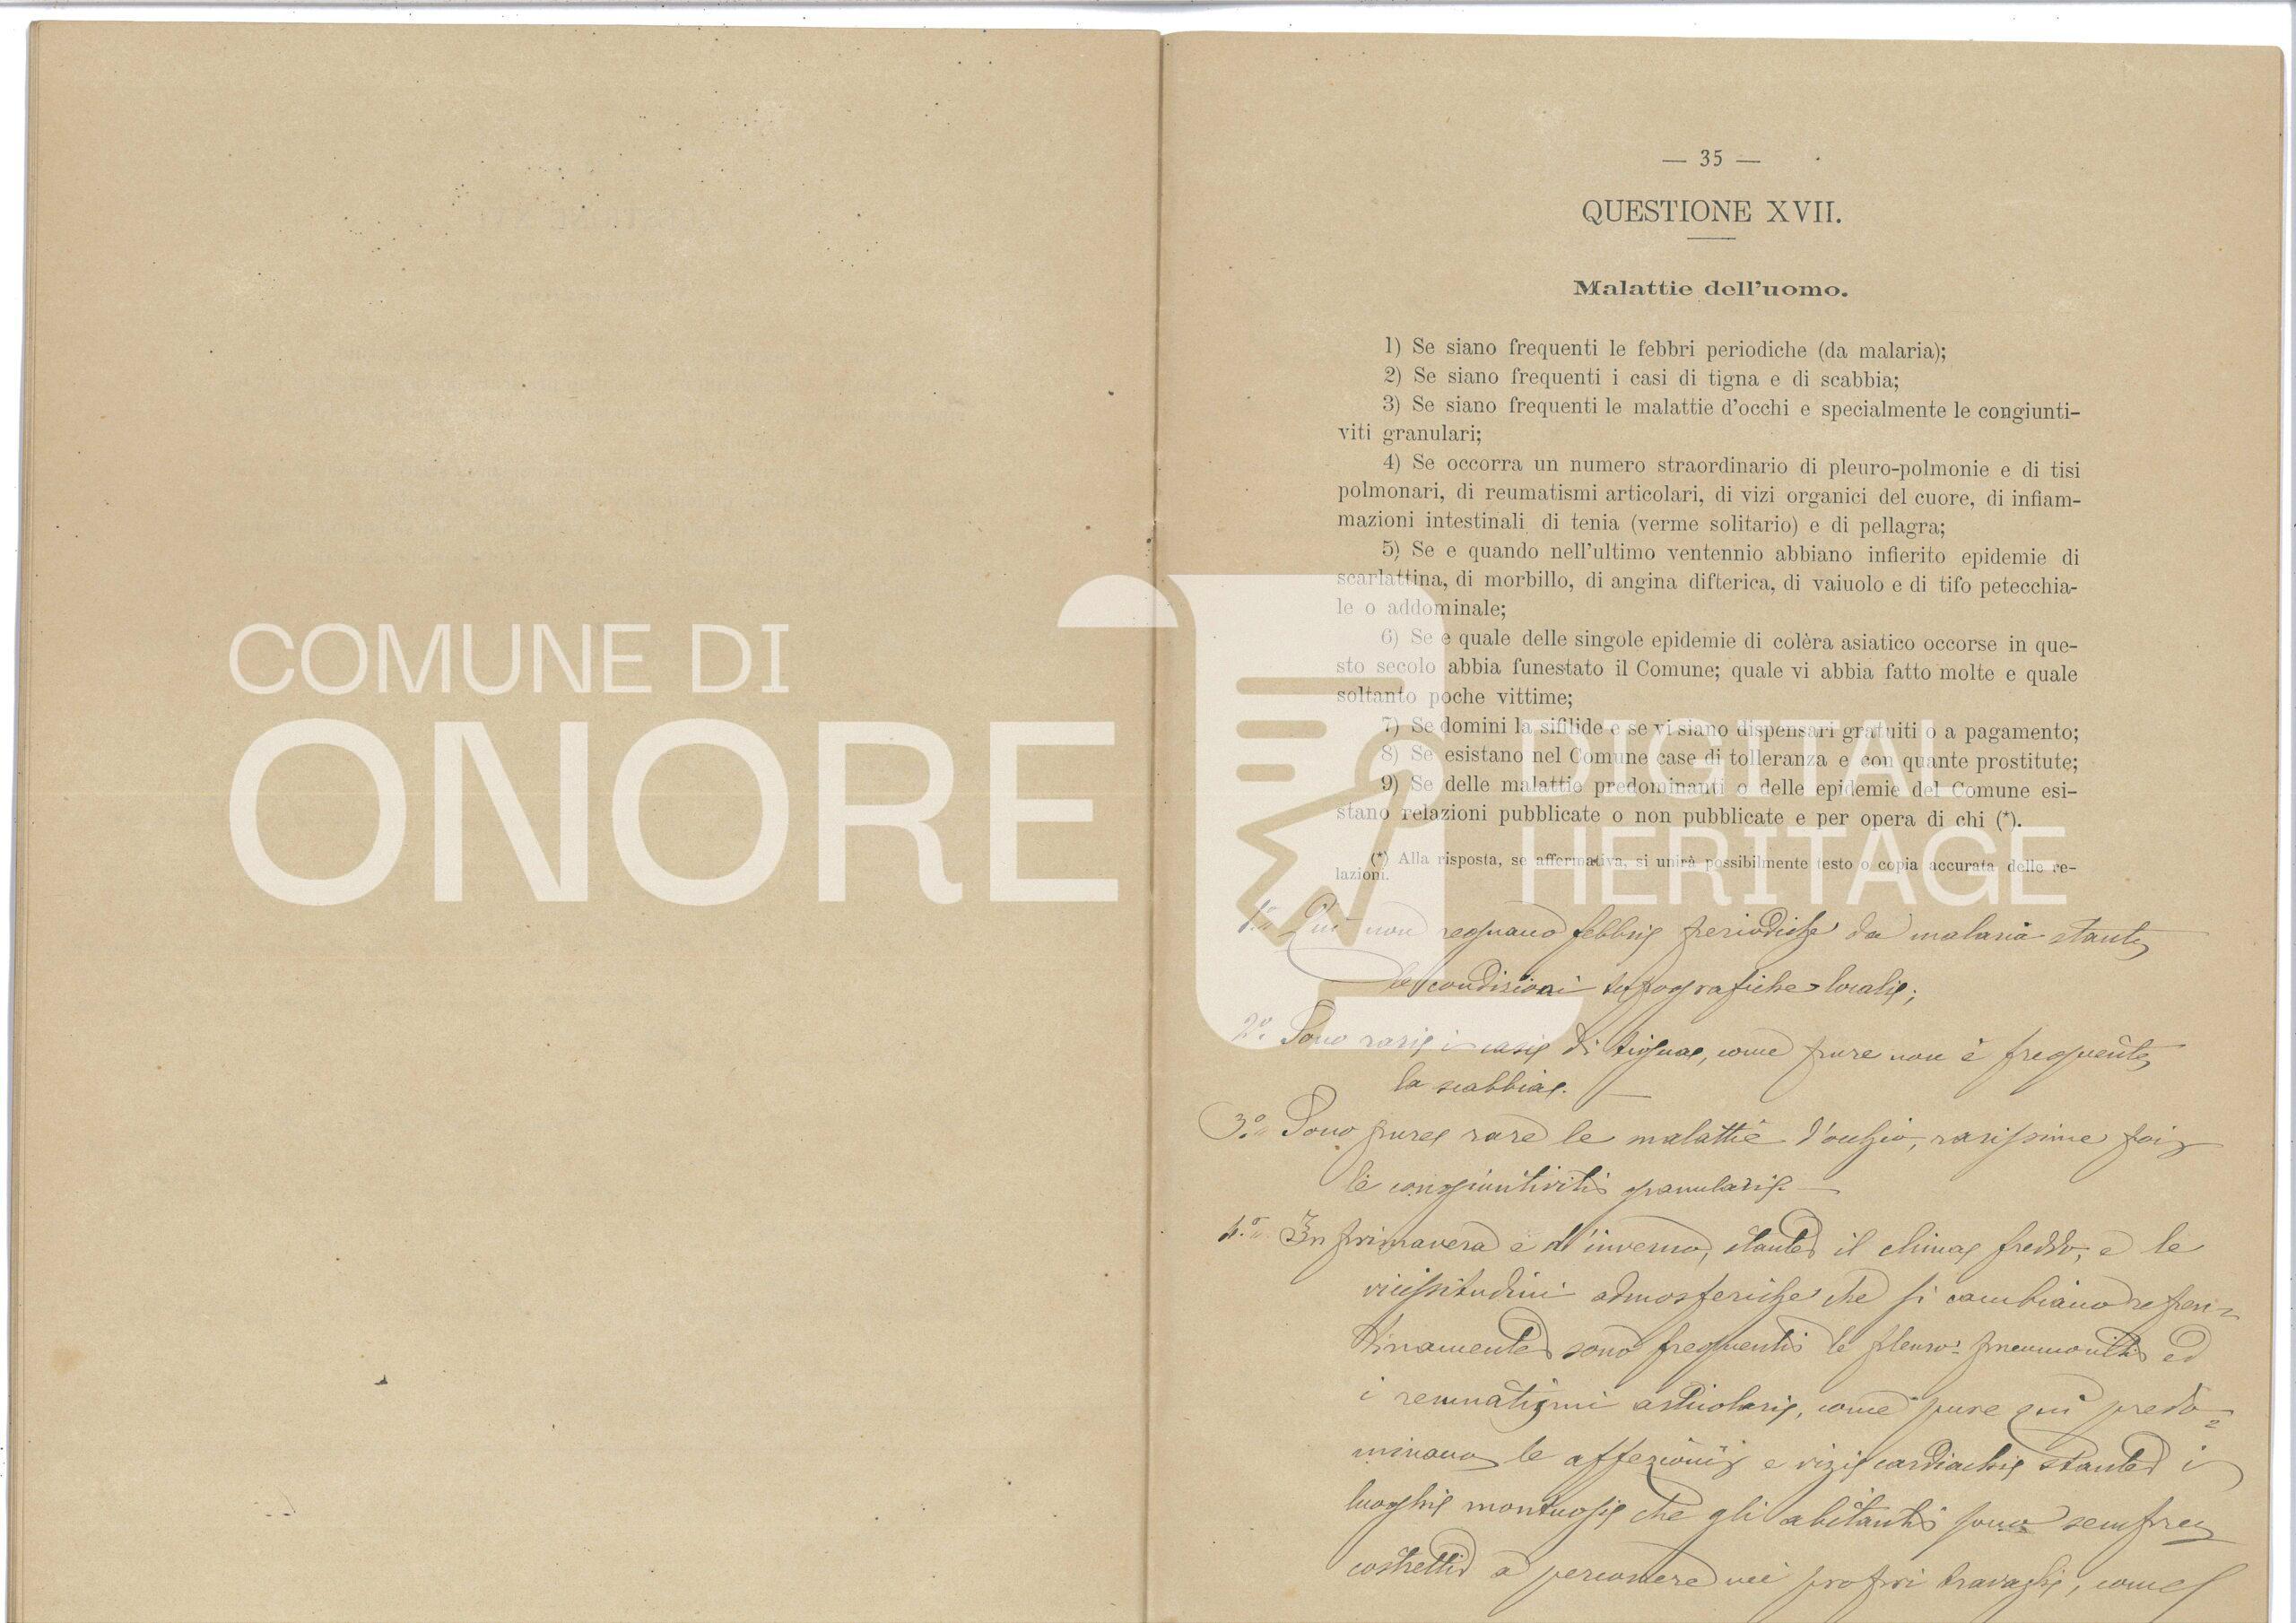 — 35 —
QUESTIONE XVII.
Malattie dell'uomo.
1) Se siano frequenti le febbri periodiche (da malaria);
2) Se siano frequenti i casi di tigna e di scabbia;
3) Se siano frequenti le malattie d'occhi e specialmente le congiunti-
viti granulari;
4) Se occorra un numero straordinario di pleuro-polmonie e di tisi
polmonari, di reumatismi articolari, di vizi organici del cuore, di infiam-
mazioni intestinali di tenia (verme solitario) e di pellagra;
5) Se e quando nell'ultimo ventennio abbiano infierito epidemie di
scarlattina, di morbillo, di angina difterica, di vaiuolo e di tifo petecchia-
le o addominale;
6) Se e quale delle singole epidemie di colèra asiatico occorse in que-
sto secolo abbia funestato il Comune; quale vi abbia fatto molte e quale
soltanto poche vittime;
7) Se domini la sifilide e se vi siano dispensari gratuiti o a pagamento;
8) Se esistano nel Comune case di tolleranza e con quante prostitute;
9) Se delle malattie predominanti o delle epidemie del Comune esi-
stano relazioni pubblicate o non pubblicate e per opera di chi (*).
(*) Alla risposta, se affermativa, si unirà possibilmente testo o copia accurata delle re-
lazioni.
1.° Qui non regnano febbri periodiche da malaria stante
le condizioni topografiche locali;
2.° Sono rari i casi di tigna, come pure non è frequente
la scabbia. —
3.° Sono pure rare le malattie d'occhio, rarissime poi
le congiuntiviti granulari. —
4.° In primavera e d'inverno, stante il clima freddo, e le
vicissitudini admosferiche che si cambiano repen=
tinamente sono frequenti le pleuro=pneumoniti ed
i reumatismi articolari, come pure qui predo=
minano le affezioni e vizi cardiachi stante i
luoghi montuosi che gli abitanti sono sempre
costretti a percorrere nei propri travagli, come
COMUNE DI
ONORE
DIGITAL
HERITAGE